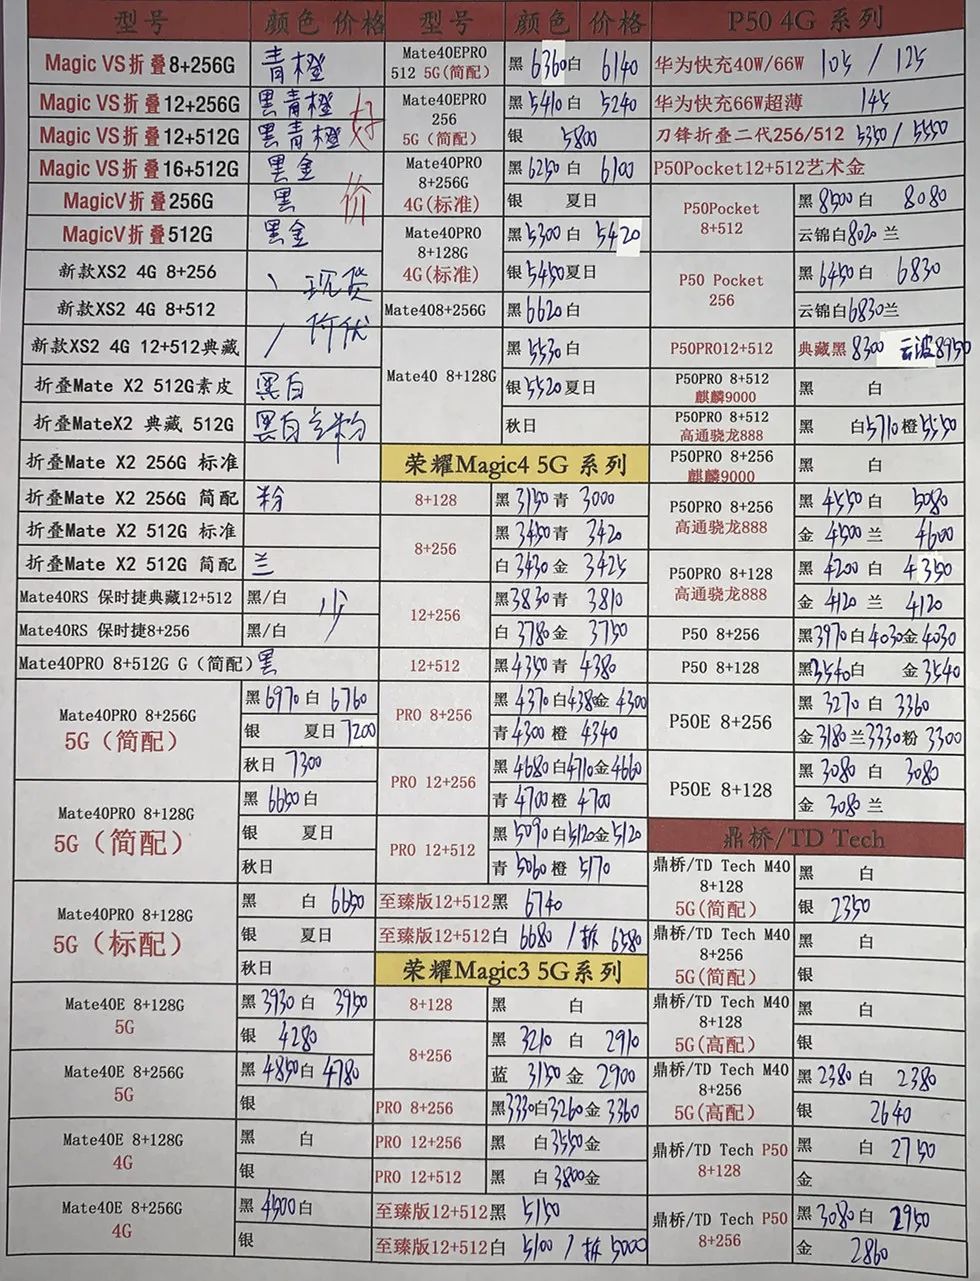 型号 颜色 价格
Magic VS折叠8+256G 青橙
Magic VS折叠12+256G 黑青橙
Magic VS折叠12+512G 黑青橙
好价
Magic VS折叠16+512G 黑金
MagicV折叠256G 黑
MagicV折叠512G 黑金
新款XS2 4G 8+256 现货
新款XS2 4G 8+512 价优
新款XS2 4G 12+512典藏
折叠Mate X2 512G素皮 黑白
折叠MateX2 典藏 512G 黑白 粉
折叠Mate X2 256G 标准
折叠Mate X2 256G 简配 粉
折叠Mate X2 512G 标准
折叠Mate X2 512G 简配 兰
Mate40RS 保时捷典藏12+512 黑/白
少
Mate40RS 保时捷8+256 黑/白
Mate40PRO 8+512G G（简配） 黑
Mate40PRO 8+256G
5G（简配）
黑 6970 白 6760
银 夏日 7200
秋日 7300
Mate40PRO 8+128G
5G（简配）
黑 6650 白
银 夏日
秋日
Mate40PRO 8+128G
5G（标配）
黑 白 6650
银 夏日
秋日
Mate40E 8+128G
5G
黑 3930 白 3950
银 4280
Mate40E 8+256G
5G
黑 4850 白 4780
银
Mate40E 8+128G
4G
黑 白
银
Mate40E 8+256G
4G
黑 4500 白
银
型号 颜色 价格
Mate40EPRO
512 5G(简配)
黑 6360 白 6140
Mate40EPRO
256
5G（简配）
黑 5410 白 5240
银 5800
Mate40PRO
8+256G
4G(标准)
黑 6250 白 6100
银 夏日
Mate40PRO
8+128G
4G(标准)
黑 5300 白 5420
银 5450 夏日
Mate408+256G 黑 6620 白
Mate40 8+128G
黑 5530 白
银 5520 夏日
秋日
荣耀Magic4 5G 系列
8+128 黑 3150 青 3000
8+256
黑 3450 青 3420
白 3430 金 3425
12+256
黑 3830 青 3810
白 3780 金 3750
12+512 黑 4350 青 4380
PRO 8+256
黑 4370 白 4380 金 4300
青 4300 橙 4340
PRO 12+256
黑 4680 白 4710 金 4660
青 4700 橙 4700
PRO 12+512
黑 5090 白 5120 金 5120
青 5060 橙 5170
至臻版12+512黑 6740
至臻版12+512白 6680 / 拆 6580
荣耀Magic3 5G系列
8+128 黑 白
8+256
黑 3210 白 2910
蓝 3150 金 2900
PRO 8+256 黑 3330 白 3260 金 3360
PRO 12+256 黑 白 3550 金
PRO 12+512 黑 白 3800 金
至臻版12+512黑 5150
至臻版12+512白 5100 / 拆 5000
P50 4G 系列
华为快充40W/66W 105 / 125
华为快充66W超薄 145
刀锋折叠二代256/512 5350 / 5550
P50Pocket12+512艺术金
P50Pocket
8+512
黑 8500 白 8080
云锦白 8020 兰
P50 Pocket
256
黑 6450 白 6830
云锦白 6830 兰
P50PRO12+512 典藏黑 8300 云波 8950
P50PRO 8+512
麒麟9000
黑 白
P50PRO 8+512
高通骁龙888
黑 白 5710 橙 5550
P50PRO 8+256
麒麟9000
黑 白
P50PRO 8+256
高通骁龙888
黑 4550 白 5080
金 4500 兰 4600
P50PRO 8+128
高通骁龙888
黑 4200 白 4350
金 4120 兰 4120
P50 8+256 黑 3970 白 4030 金 4030
P50 8+128 黑 3540 白 金 3540
P50E 8+256
黑 3270 白 3360
金 3180 兰 3330 粉 3300
P50E 8+128
黑 3080 白 3080
金 3080 兰
鼎桥/TD Tech
鼎桥/TD Tech M40
8+128
5G(简配)
黑 白
银 2350
鼎桥/TD Tech M40
8+256
5G(简配)
黑 白
银
鼎桥/TD Tech M40
8+128
5G(高配)
黑 白
银
鼎桥/TD Tech M40
8+256
5G(高配)
黑 2380 白 2380
银 2640
鼎桥/TD Tech P50
8+128
黑 白 2750
金
鼎桥/TD Tech P50
8+256
黑 3080 白 2950
金 2860